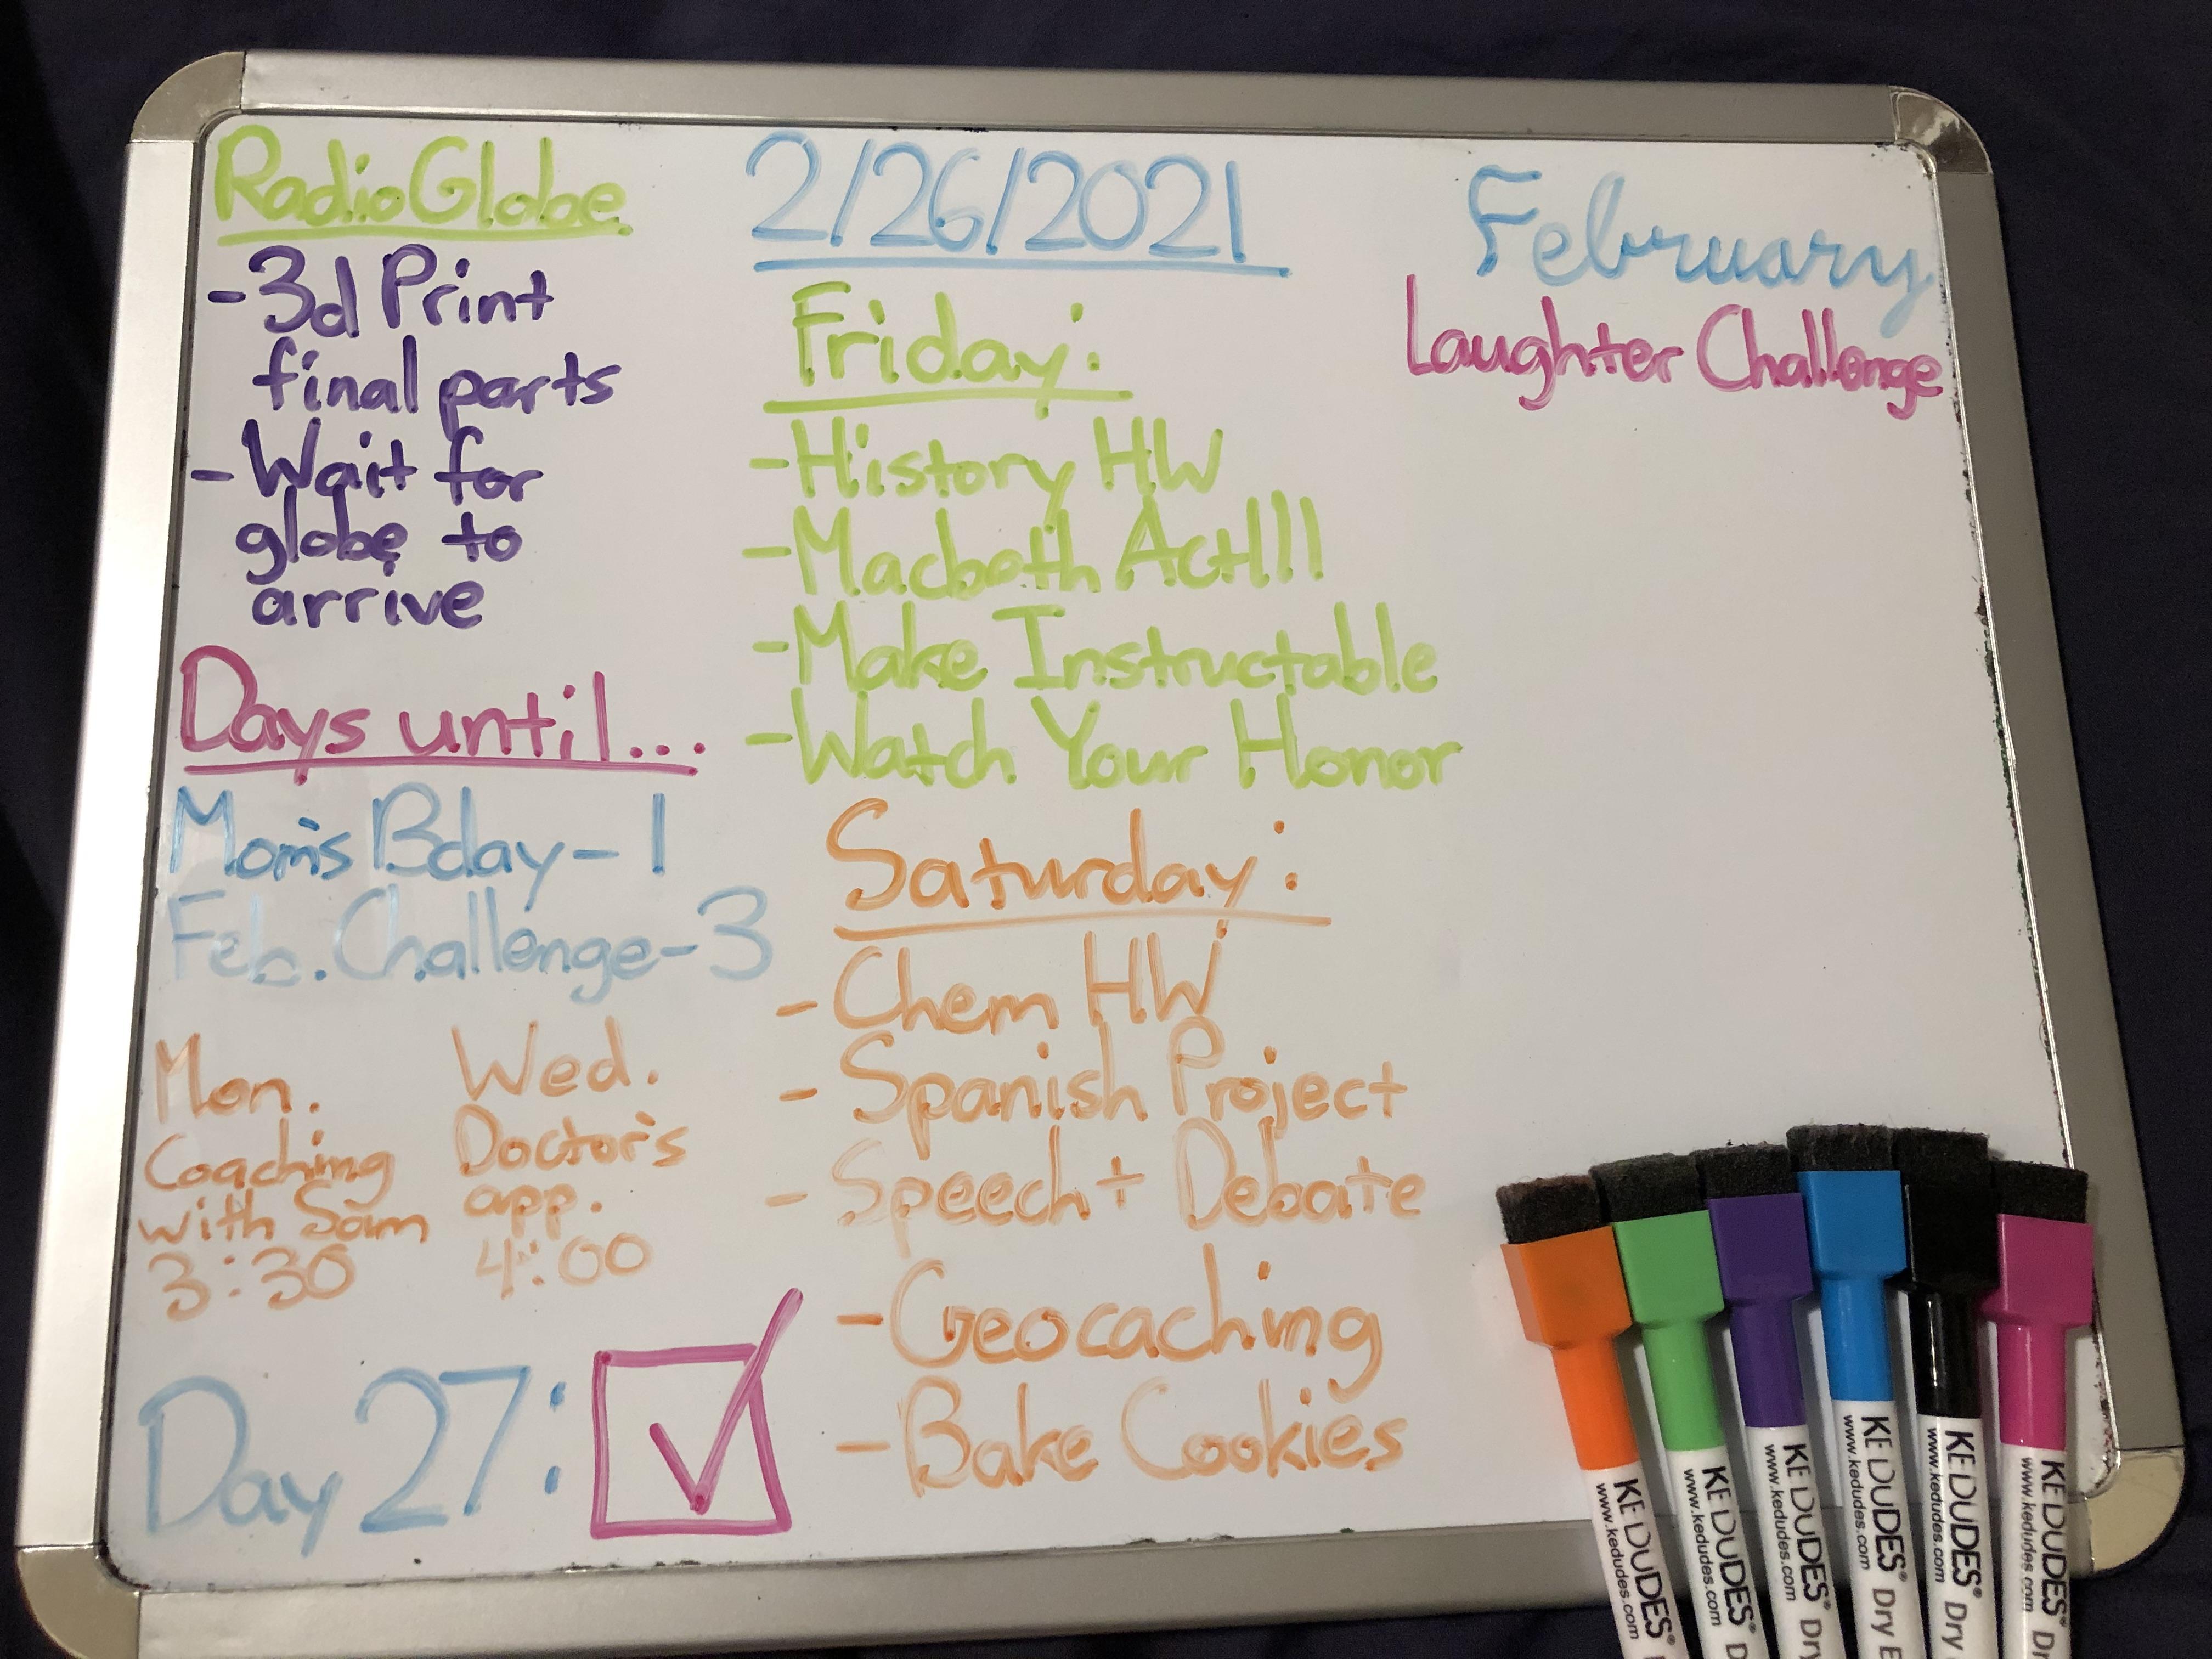 RadioGlobe
-3d Print
final parts
-Wait for
globe to
arrive
Days until...
Mom's Bday-1
Feb. Challenge-3
Mon.
Coaching
with Sam
3:30
Wed.
Doctor's
app.
4:00
Day 27:
2/26/2021
Friday:
-History HW
-Macbeth Act III
-Make Instructable
-Watch Your Honor
Saturday:
-Chem HW
-Spanish Project
-Speech + Debate
-Geocaching
-Bake Cookies
February
Laughter Challenge
KEDUDES®
www.kedudes.com
KEDUDES® D
www.kedudes.com
KEDUDES® Dry
www.kedudes.com
KEDUDES® Dry E
www.kedudes.com
KEDUDES® Dry
www.kedudes.com
KEDUDES® Dr
www.kedudes.com